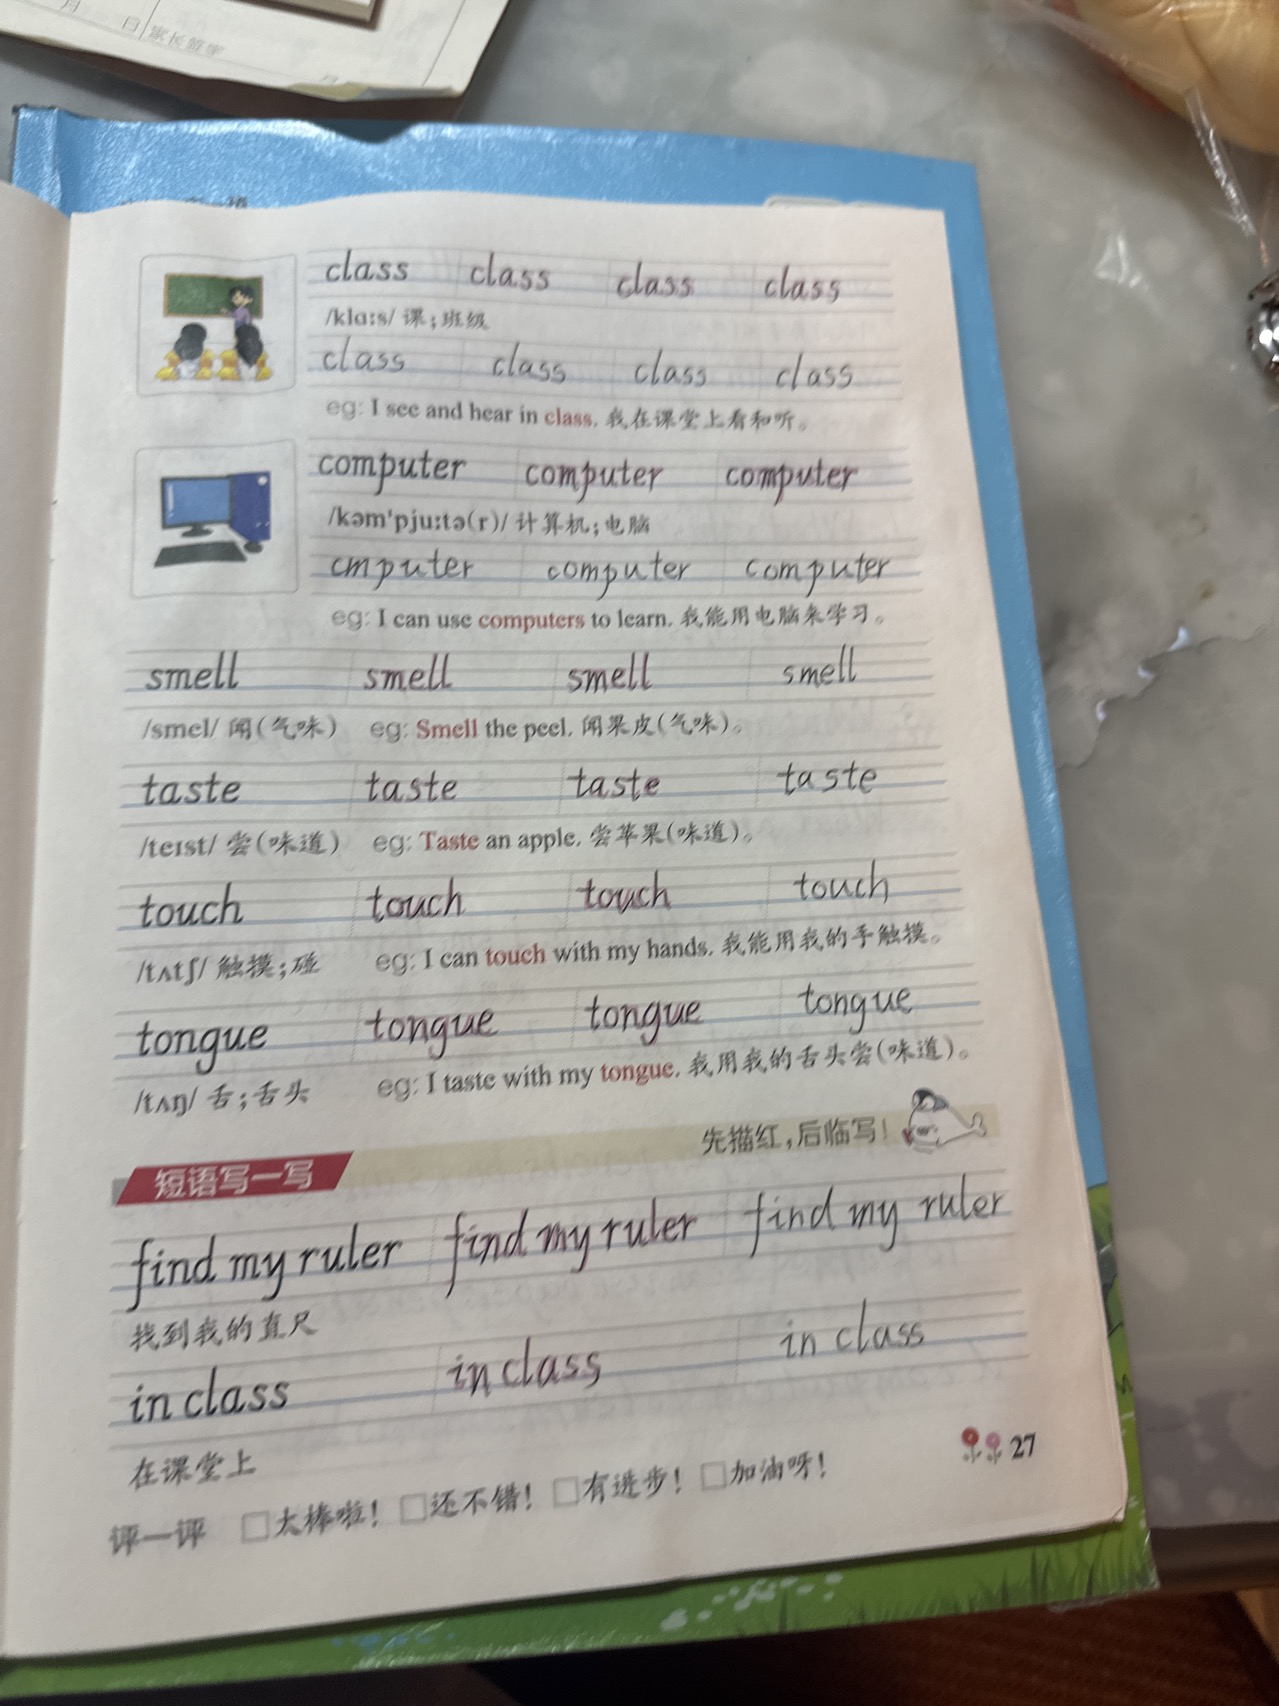 月 日 家长签字
class class class class
/klɑːs/ 课;班级
class class class class
eg: I see and hear in class. 我在课堂上看和听。
computer computer computer
/kəm'pjuːtə(r)/ 计算机;电脑
cmputer computer computer
eg: I can use computers to learn. 我能用电脑来学习。
smell smell smell smell
/smel/ 闻(气味) eg: Smell the peel. 闻果皮(气味)。
taste taste taste taste
/teɪst/ 尝(味道) eg: Taste an apple. 尝苹果(味道)。
touch touch touch touch
/tʌtʃ/ 触摸;碰 eg: I can touch with my hands. 我能用我的手触摸。
tongue tongue tongue tongue
/tʌŋ/ 舌;舌头 eg: I taste with my tongue. 我用我的舌头尝(味道)。
先描红,后临写!
短语写一写
find my ruler find my ruler find my ruler
找到我的直尺
in class in class in class
在课堂上
评一评 □太棒啦! □还不错! □有进步! □加油呀!
27